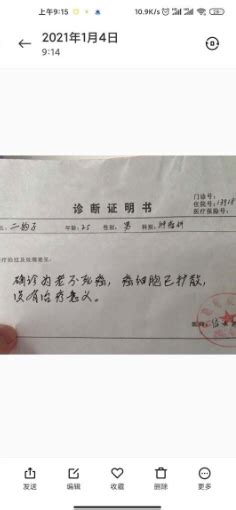 上午9:15
10.9K/s
28
2021年1月4日
9:14
诊断证明书
门诊号:
住院号:
医疗保险号:
二狗子 年龄:25 性别:男 科别:肿瘤科
确诊为老不死癌,癌细胞已扩散,
没有治疗意义。
发送 编辑 收藏 删除 更多